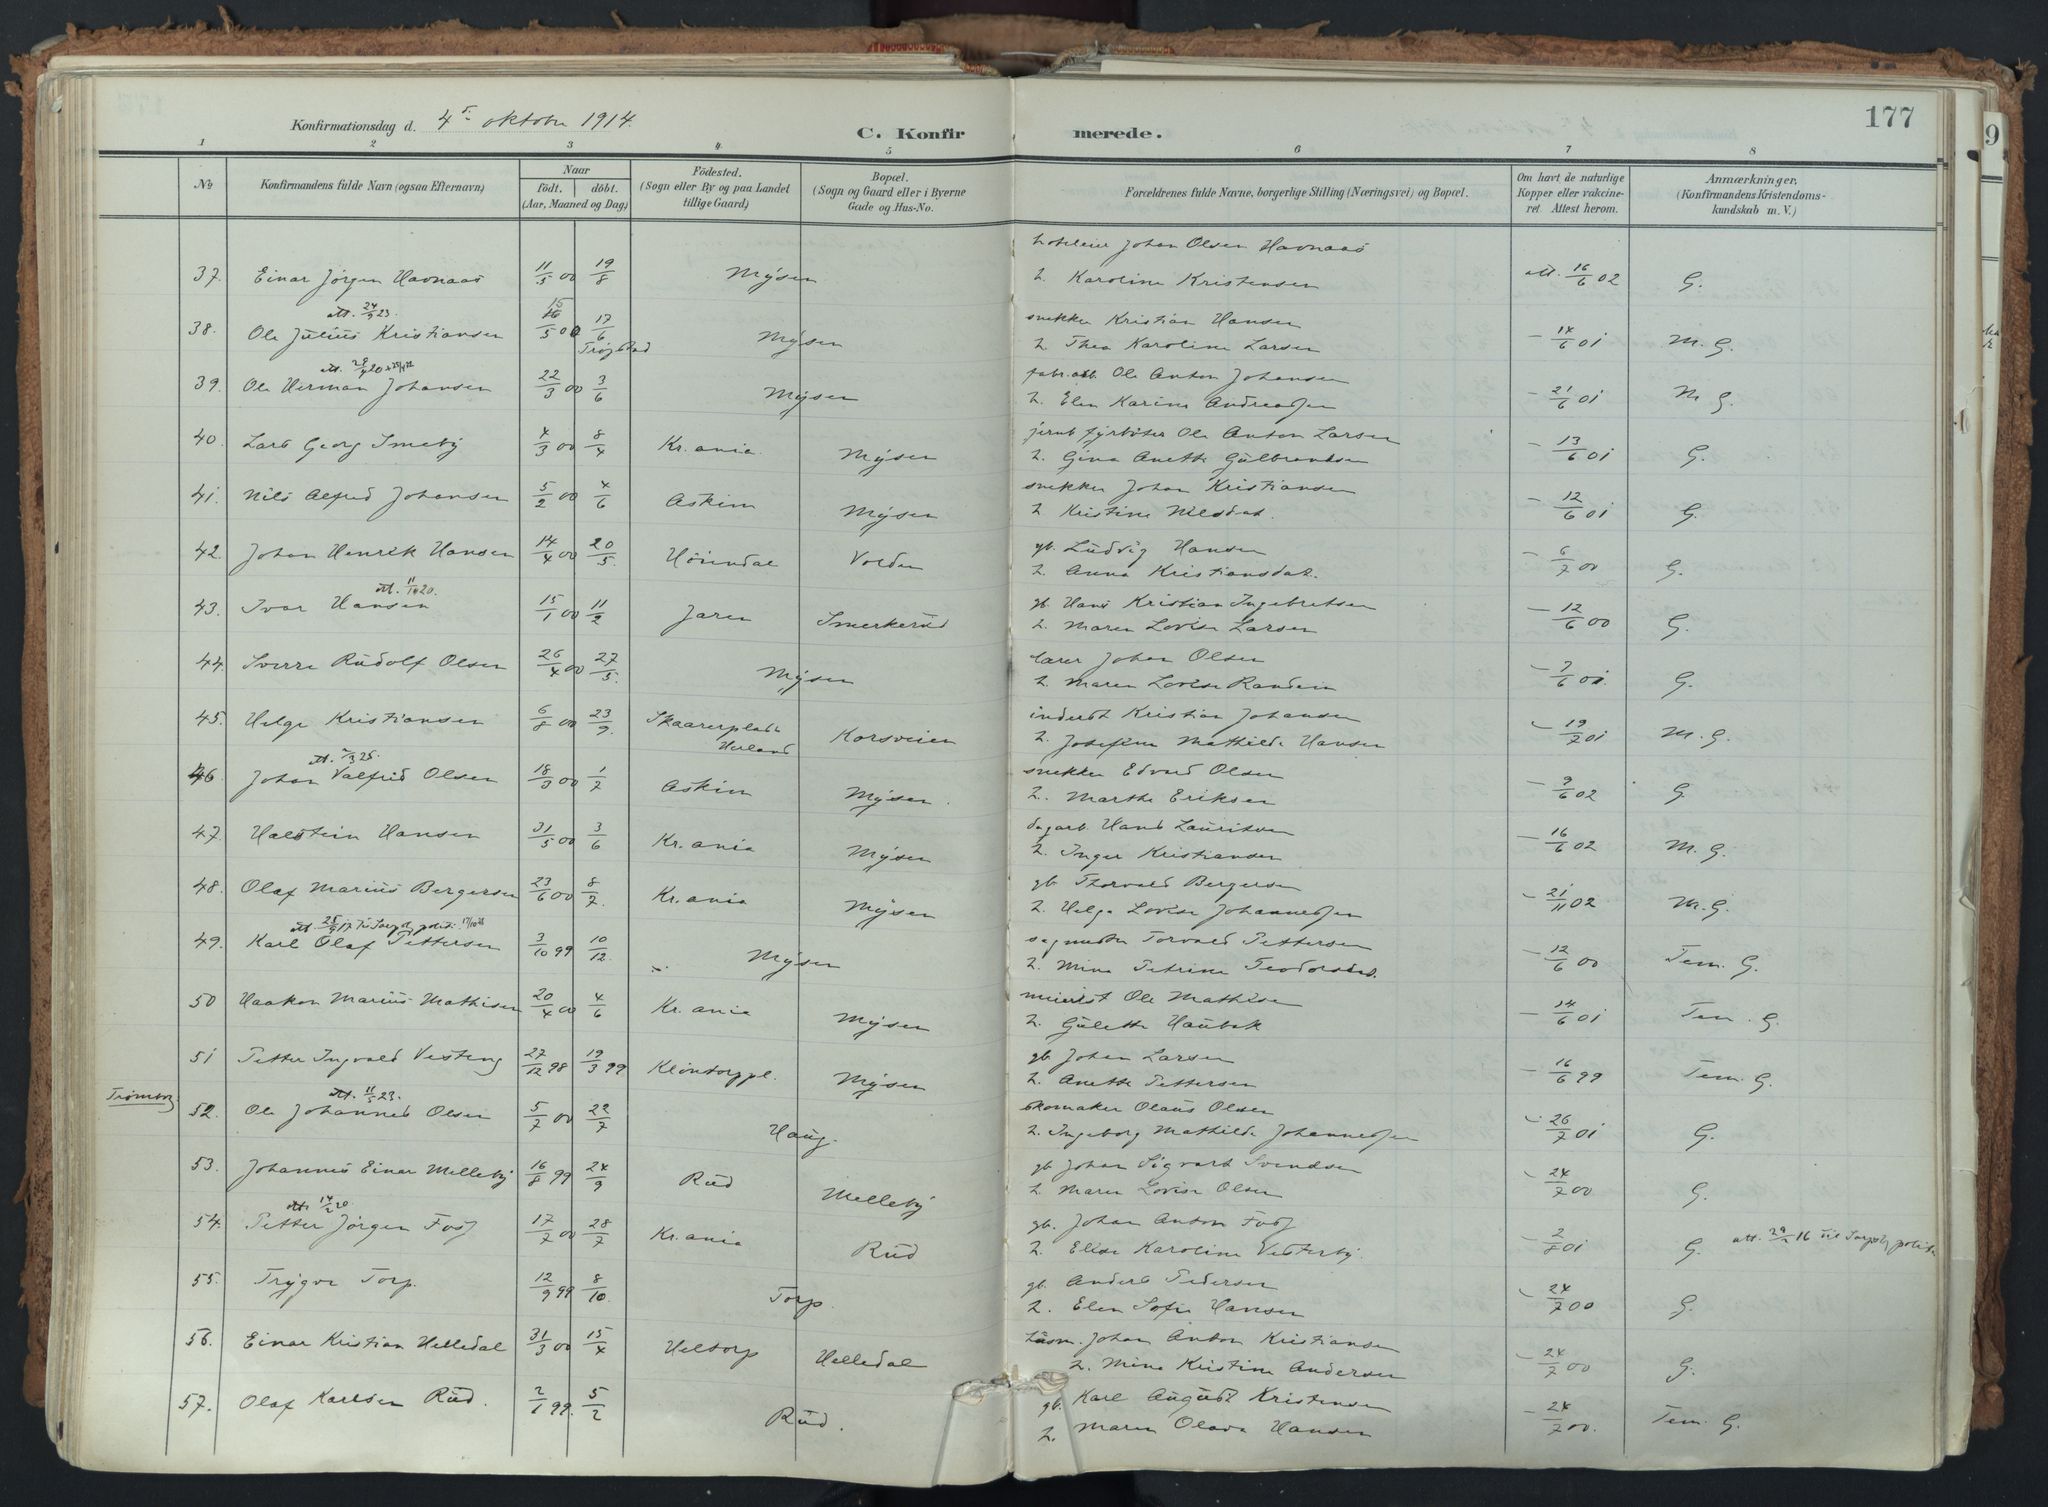 177
Konfirmationsdag d. 4de oktober 1914.
C. Konfirmerede.
1 2 3 4. 5 6 7 8
No Konfirmandens fulde Navn (ogsaa Efternavn) Naar födt. döbt. (Aar, Maaned og Dag) Födested. (Sogn eller By og paa Landet tillige Gaard) Bopæl. (Sogn og Gaard eller i Byerne Gade og Hus-No. Forældrenes fulde Navne, borgerlige Stilling (Næringsvei) og Bopæl. Om havt de naturlige Kopper eller vakcineret. Attest herom. Anmærkninger, (Konfirmandens Kristendomskundskab m. V.)
hoteleier Johan Olsen Havnaas
37. Einar Jörgen Havnaas 11/5 00 19/8 Mysen h. Karoline Kristensen att. 16/6 02 G.
att. 24/9 23. 15
38. Ole Julius Kristiansen 16/5 00 17/6 Trøgstad Mysen snekker Kristian Hansen
h. Thea Karoline Larsen - 14/6 01 M. G.
39. Ole Herman Johansen 22/3 00 3/6 Mysen fabr.arb. Ole Anton Johansen
h. Elen Karine Andreassen - 21/6 01 M G.
40. Lars Georg Smeby 4/3 00 8/4 Kr.ania. Mysen jernb fyrböter Ole Anton Larsen
h. Gina Anette Gulbrandsen - 13/6 01 G.
41. Nils Alfred Johansen 5/2 00 4/6 Askim Mysen snekker Johan Kristiansen
h Kristine Nilsdat. - 12/6 01 G.
42. Johan Henrik Hansen 14/4 00 20/5. Höiendal Volden gb. Ludvig Hansen
h. Anna Kristiansdat. - 6/7 00 G.
att. 11/1 20.
43. Ivar Hansen 15/1 00 11/2 Jaren Smerkerud gb. Hans Kristian Ingebretsen
h. Maren Lovise Larsen - 12/6 00 G.
44. Sverre Rudolf Olsen 26/4 00 27/5. Mysen lærer Johan Olsen
h. Maren Lovise - 7/6 01. G.
45. Helge Kristiansen 6/8 00 23/9. Herland Korsveien inderst Kristian Johansen
h. Josefine Mathilde Hansen - 19/7 01 M. G.
46. Johan Valfrid Olsen 18/3 00 1/7 Askim Mysen. snekker Edvard Olsen
h. Marthe Eriksen - 9/6 02 G.
47. Halstein Hansen 31/5 00 3/6 Kr.ania Mysen dagarb. Hans Lauritsen
h. Inger Kristiansen - 16/6 02 M. G.
48. Olaf Marius Bergersen 23/6 00 8/7 Kr.ania Mysen gb. Thorvald Bergersen
h. Helga Lovise Johannessen - 21/11 02 M. G.
49. Karl Olaf Pettersen 3/10 99 10/12. Mysen sagmester Torvald Pettersen
h. Mina Petrine Teodorsdat. - 12/6 00 Tem. G.
50 Haakon Marius Mathisen 20/4 00 4/6 Kr.ania Mysen meierist Ole Mathisen
h. Gulette Haubek - 14/6 01 Tem. G.
51 Petter Ingvald Vesteng 27/12 98 19/3 99 Klöntorppl. Mysen gb. Johan Larsen
h. Anette Pettersen - 16/6 99 Tem. G.
Trömborg att. 11/5 23.
52. Ole Johannes Olsen 5/7 00 22/7 Haug. skomaker Olaus Olsen
h. Ingeborg Mathilde Johannessen - 26/7 01 G.
53. Johannes Einar Melleby 16/8 99 24/9 Rud Melleby gb Johan Sigvart Svendsen
h Maren Lovise Olsen - 24/7 00 G.
att. 14/2 20
54. Petter Jörgen Foss 17/7 00 28/7 Kr.ania Rud gb. Johan Anton Foss
h. Elise Karoline Vesterby. - 2/8 01 G.
55. Trygve Torp. 12/9 99 8/10. Torp. gb. Anders Pedersen
h. Elen Sofie Hansen - 24/7 00 G.
56. Einar Kristian Helledal 31/3 00 15/4 Heltorp Helledal husm. Johan Anton Kristiansen
h. Mina Kristine Andersen - 24/7 00 G.
57. Olaf Karlsen Rud. 2/1 99. 5/2 Rud. gb. Karl August Kristensen
h. Maren Olava Hansen - 24/7 00. Tem. G.